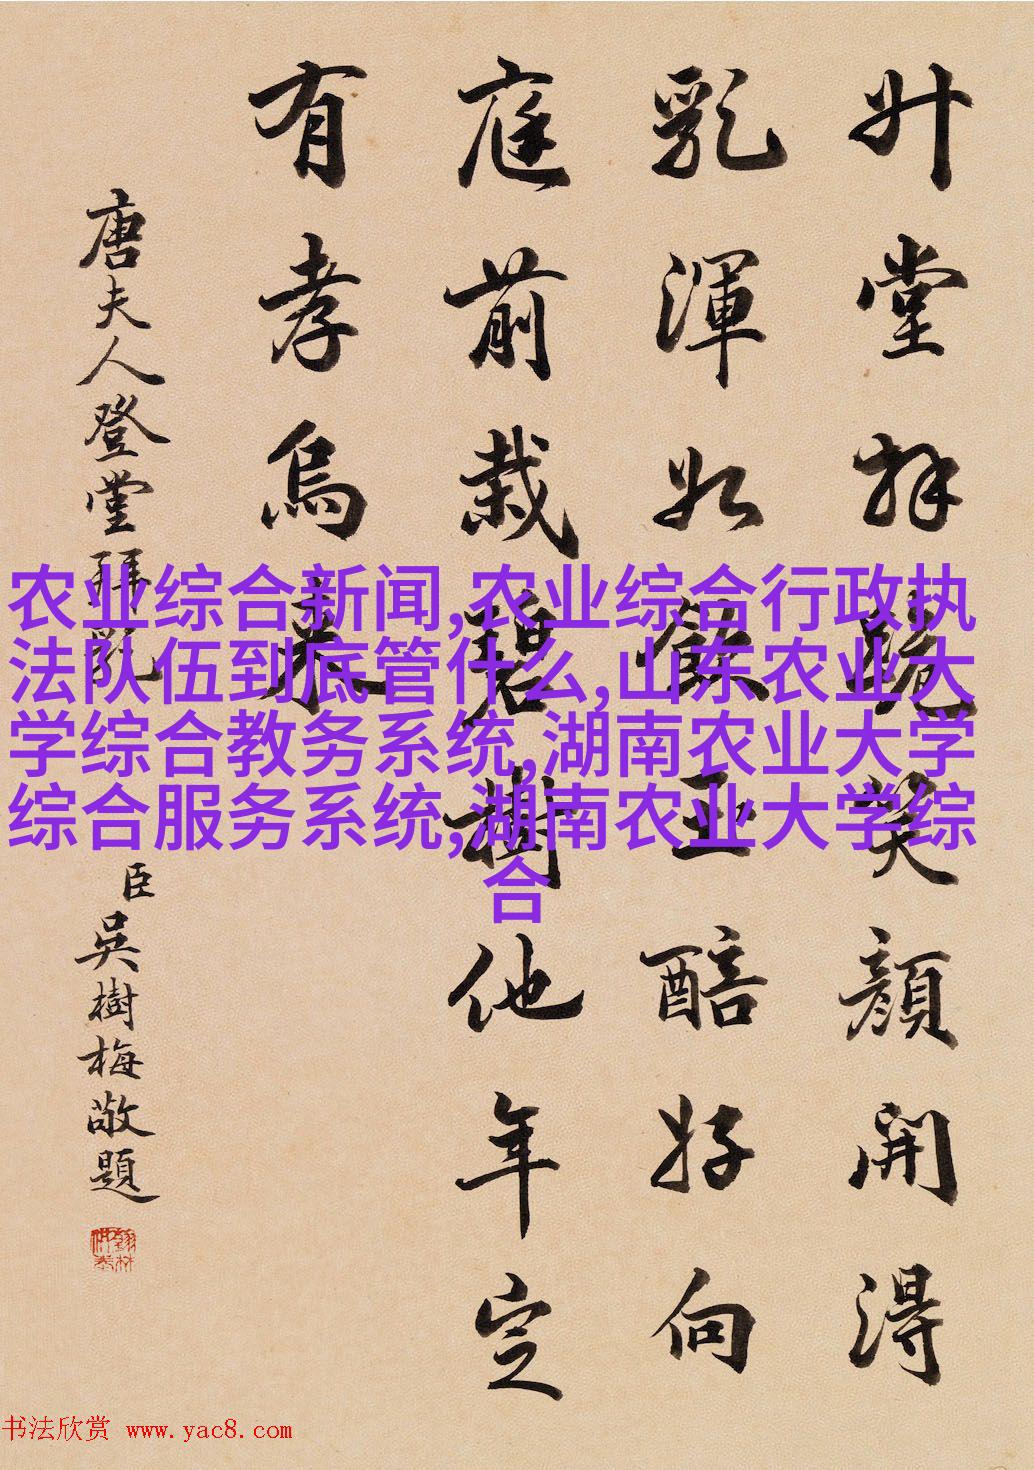 升堂拜笑顏開得
乳渾如飲玉醅好向
庭前栽碧樹他年定
有孝烏來
唐夫人登堂拜乳
臣吳樹梅敬題
农业综合新闻,农业综合行政执
法队伍到底管什么,山东农业大
学综合教务系统,湖南农业大学
综合服务系统,湖南农业大学综
合
书法欣赏 www.yac8.com